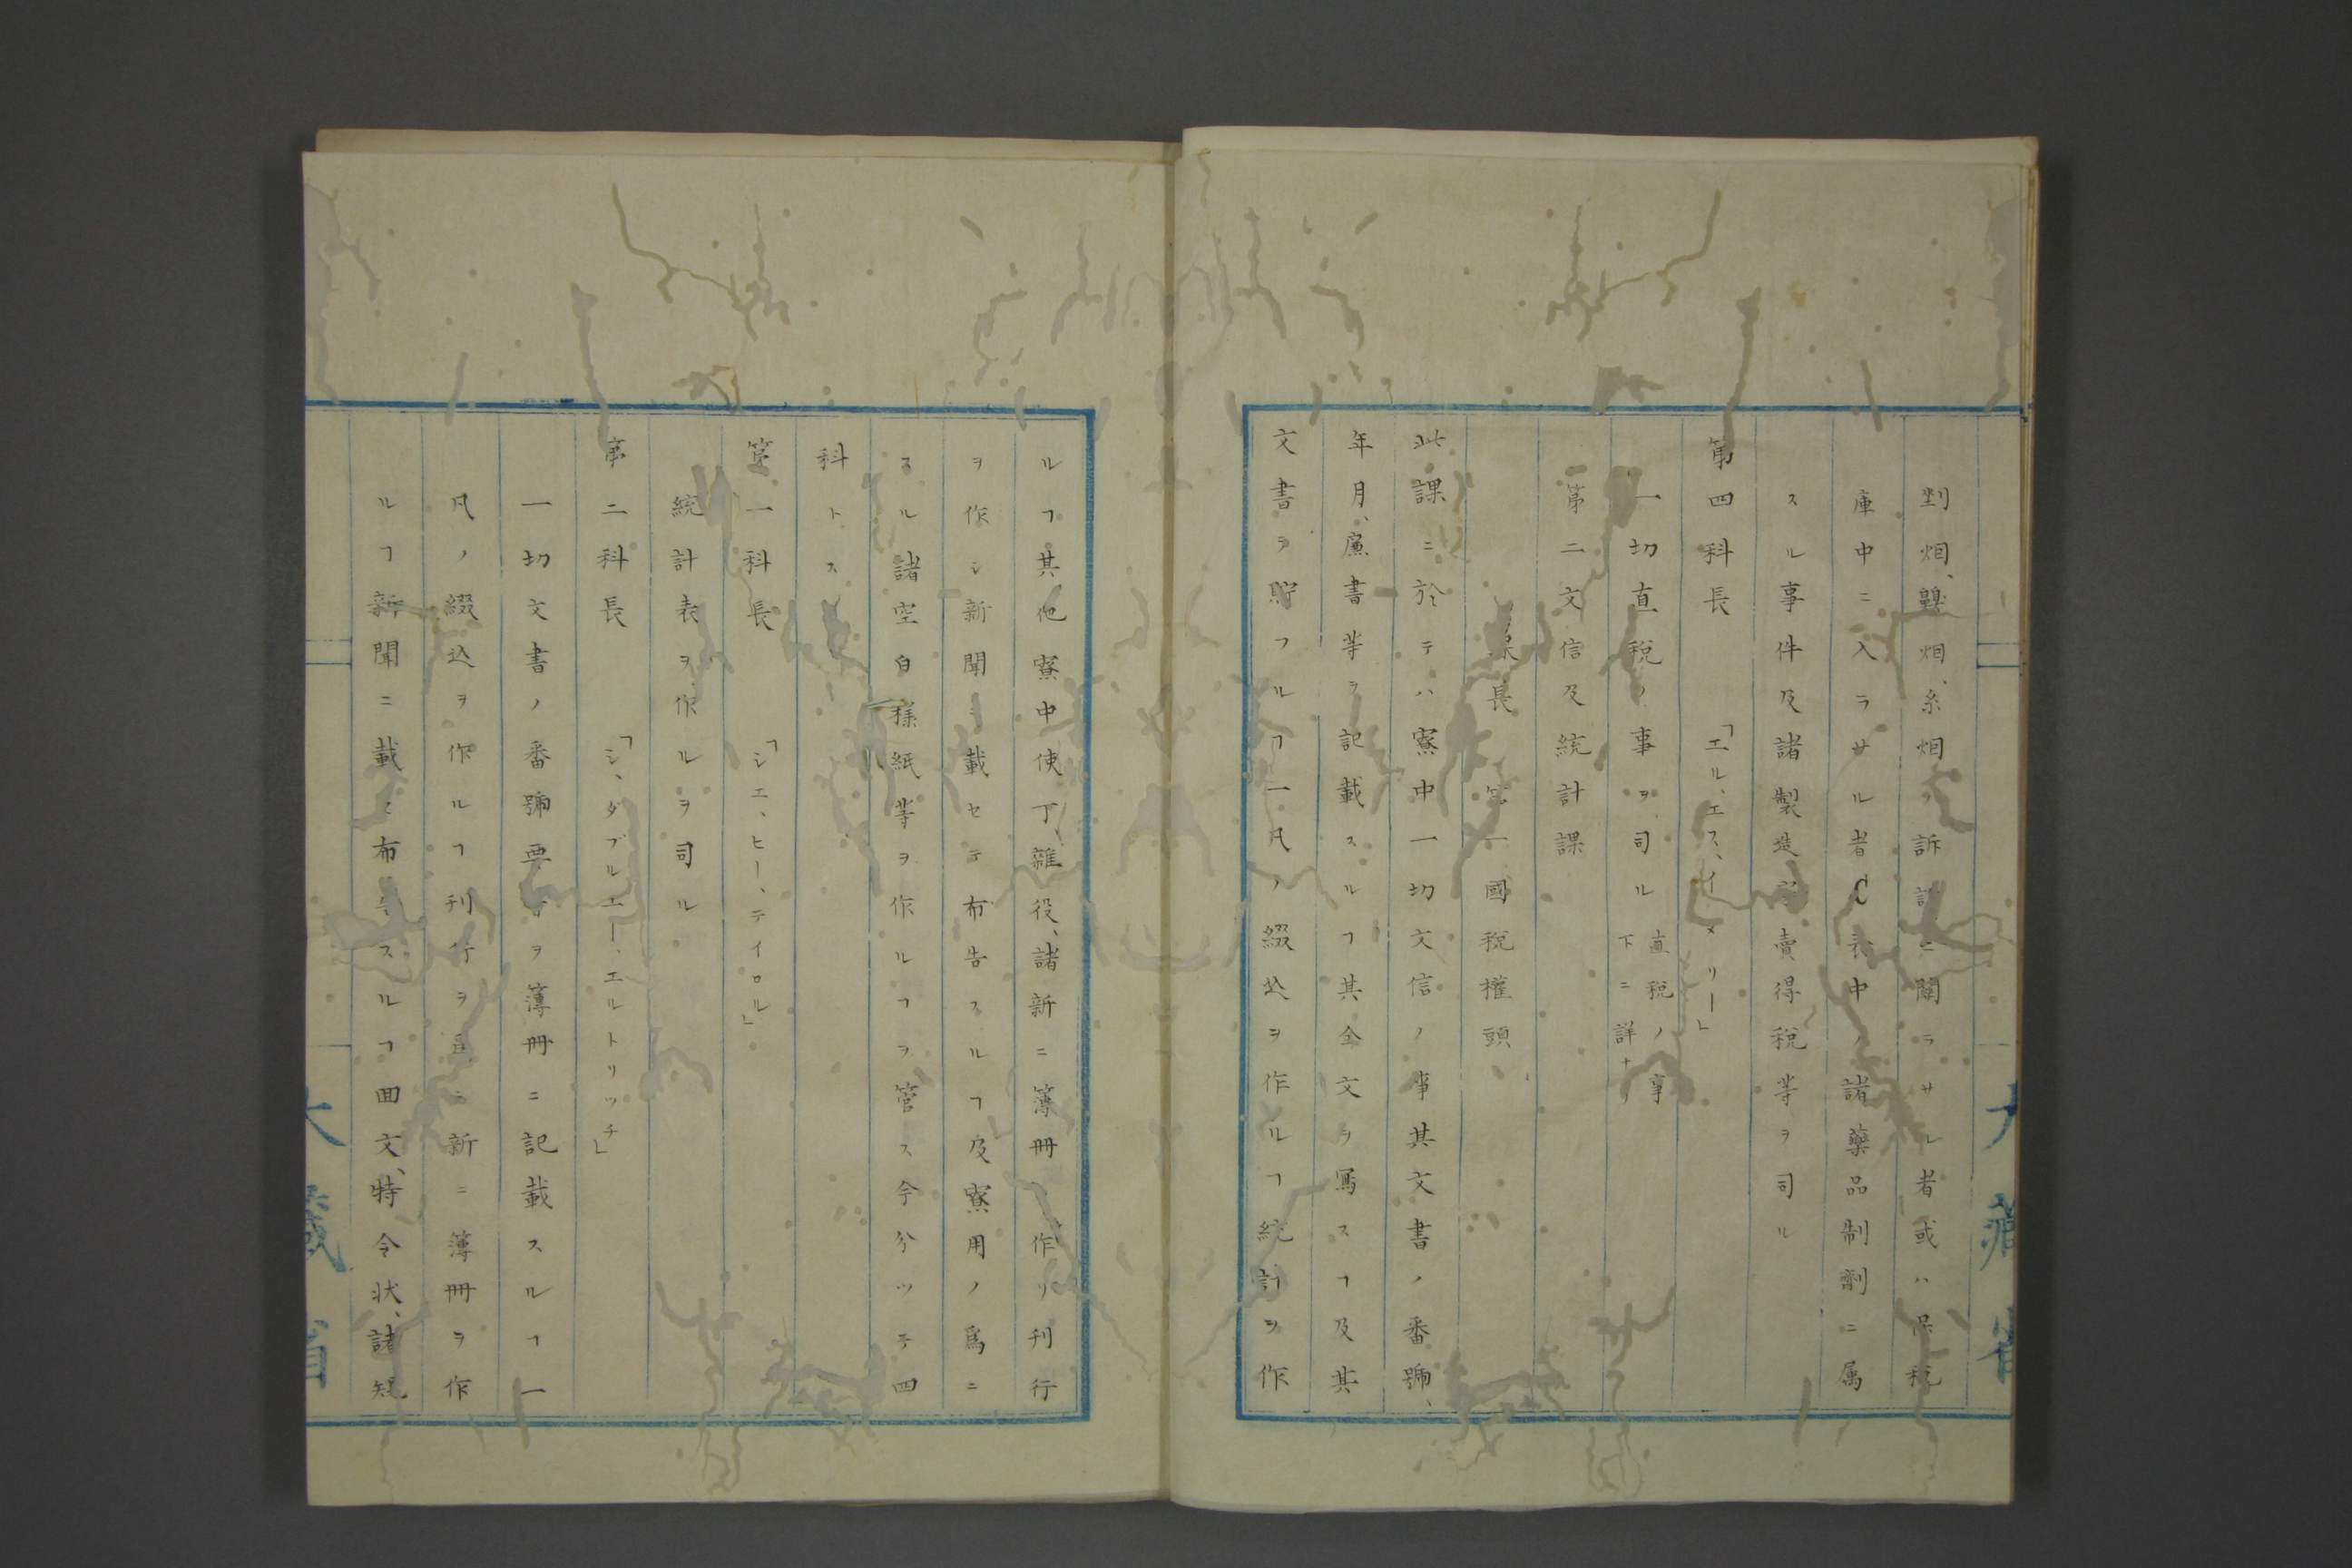 剉烟、嗅烟、糸烟ノ訴訟ニ關ラサル者或ハ保税
庫中ニ入ラサル者C表中ノ諸藥品制劑ニ属
スル事件及諸製造賣得税等ヲ司ル
第四科長 「エル、エス、イメリー」
一切直税ノ事ヲ司ル 直税ノ事下ニ詳ナ
第二文信及統計課
課長 第一國税權頭
此課ニ於テハ寮中一切文信ノ事其文書ノ番號、
年月、廉書等ヲ記載スルヿ其全文ヲ寫スヿ及其
文書ヲ貯フルヿ一凡ノ綴込ヲ作ルヿ統計ヲ作
ルヿ其他寮中使丁、雜役、諸新ニ簿冊ヲ作リ刊行
ヲ作シ新聞ニ載セテ布告スルヿ及寮用ノ爲ニ
スル諸空白樣紙等ヲ作ルヿヲ管ス今分ツテ四
科トス
第一科長 「シエ、ヒー、テイロル」
統計表ヲ作ルヲ司ル
第二科長 「シ、ダブルエー、エルトリッチ」
一切文書ノ番號要ヲ簿冊ニ記載スルヿ一
凡ノ綴込ヲ作ルヿ刊行ヲ新ニ簿冊ヲ作
ルヿ新聞ニ載セ布告スルヿ囬文、特令状、諸規
大藏省